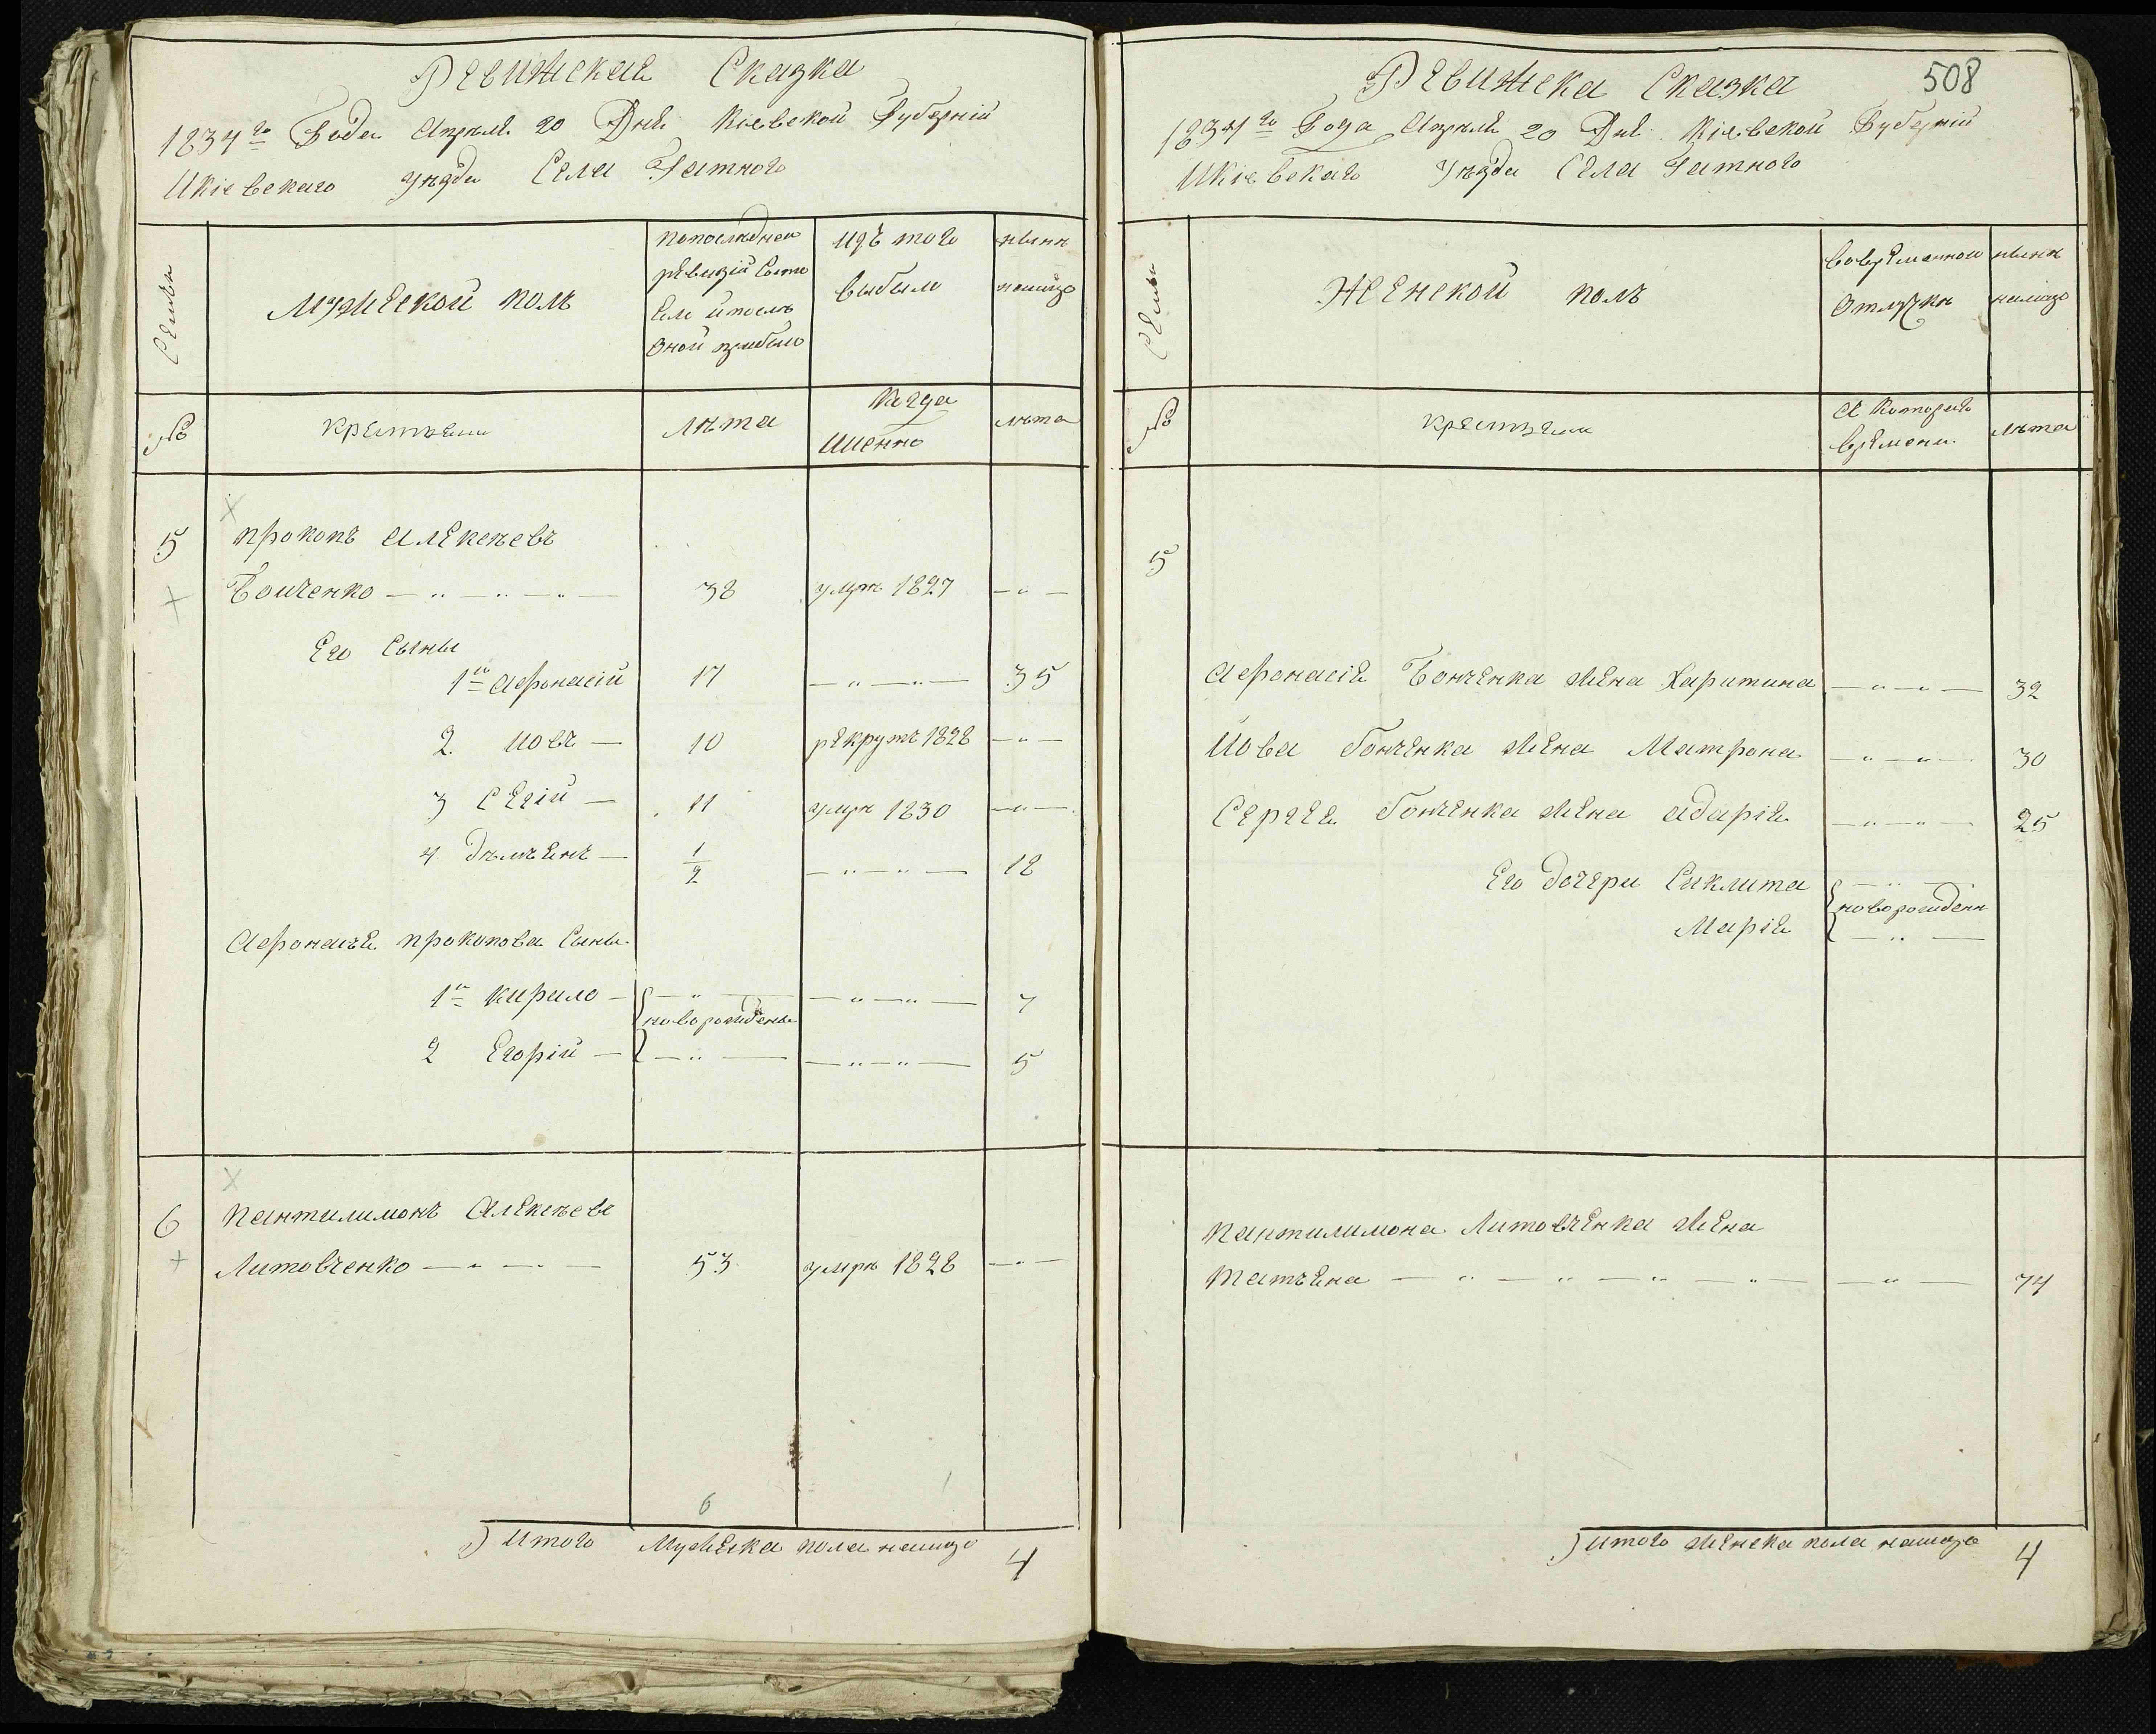 Ревижская Сказка
1834го Года Апреля 20 Дня Кіевской Губерніи
Икіевскаго уезда Села Гатного
Семьи
Мужеской полъ
попоследней
ревизіи Состо
яло ипосле
Оной прибыло
Изъ того
выбыло
ныне
налицо
№
крестьяни
Лета
Когда
Именно
лета
5
прокопъ Алексеевъ
Гонченко
38
умре 1827
Его Сыны
1й Афонасій
17
35
2. Иовъ
10
рекрутъ 1828
3 Сегій
11
умре 1830
4 Демъянъ
1/2
18
Афонасья прокопова Сыны
1й Кирило
7
новорожденны
2 Егорій
5
6
Пантилимонъ Алексеевъ
Литовченко
53
умре 1828
6
Итого Мужеска пола налицо 4
508
Ревижска Сказка
1834го Года Апреля 20 Дня Кіевской Губерніи
Икіевскаго Уезда Села Гатного
Семьи
Женской полъ
вовременной
Отлучке
ныне
налицо
№
крестьяни
С Которого
времени
лета
5
Афонасія Гонченка жена Харитина
32
Иова Гонченка жена Матрона
30
Сергея Гонченка жена Адарія
25
Его дочери Сиклита
новорожденн
Марія
Пантилимона Литовченка жена
Татьяна
74
Итого женска пола налицо 4